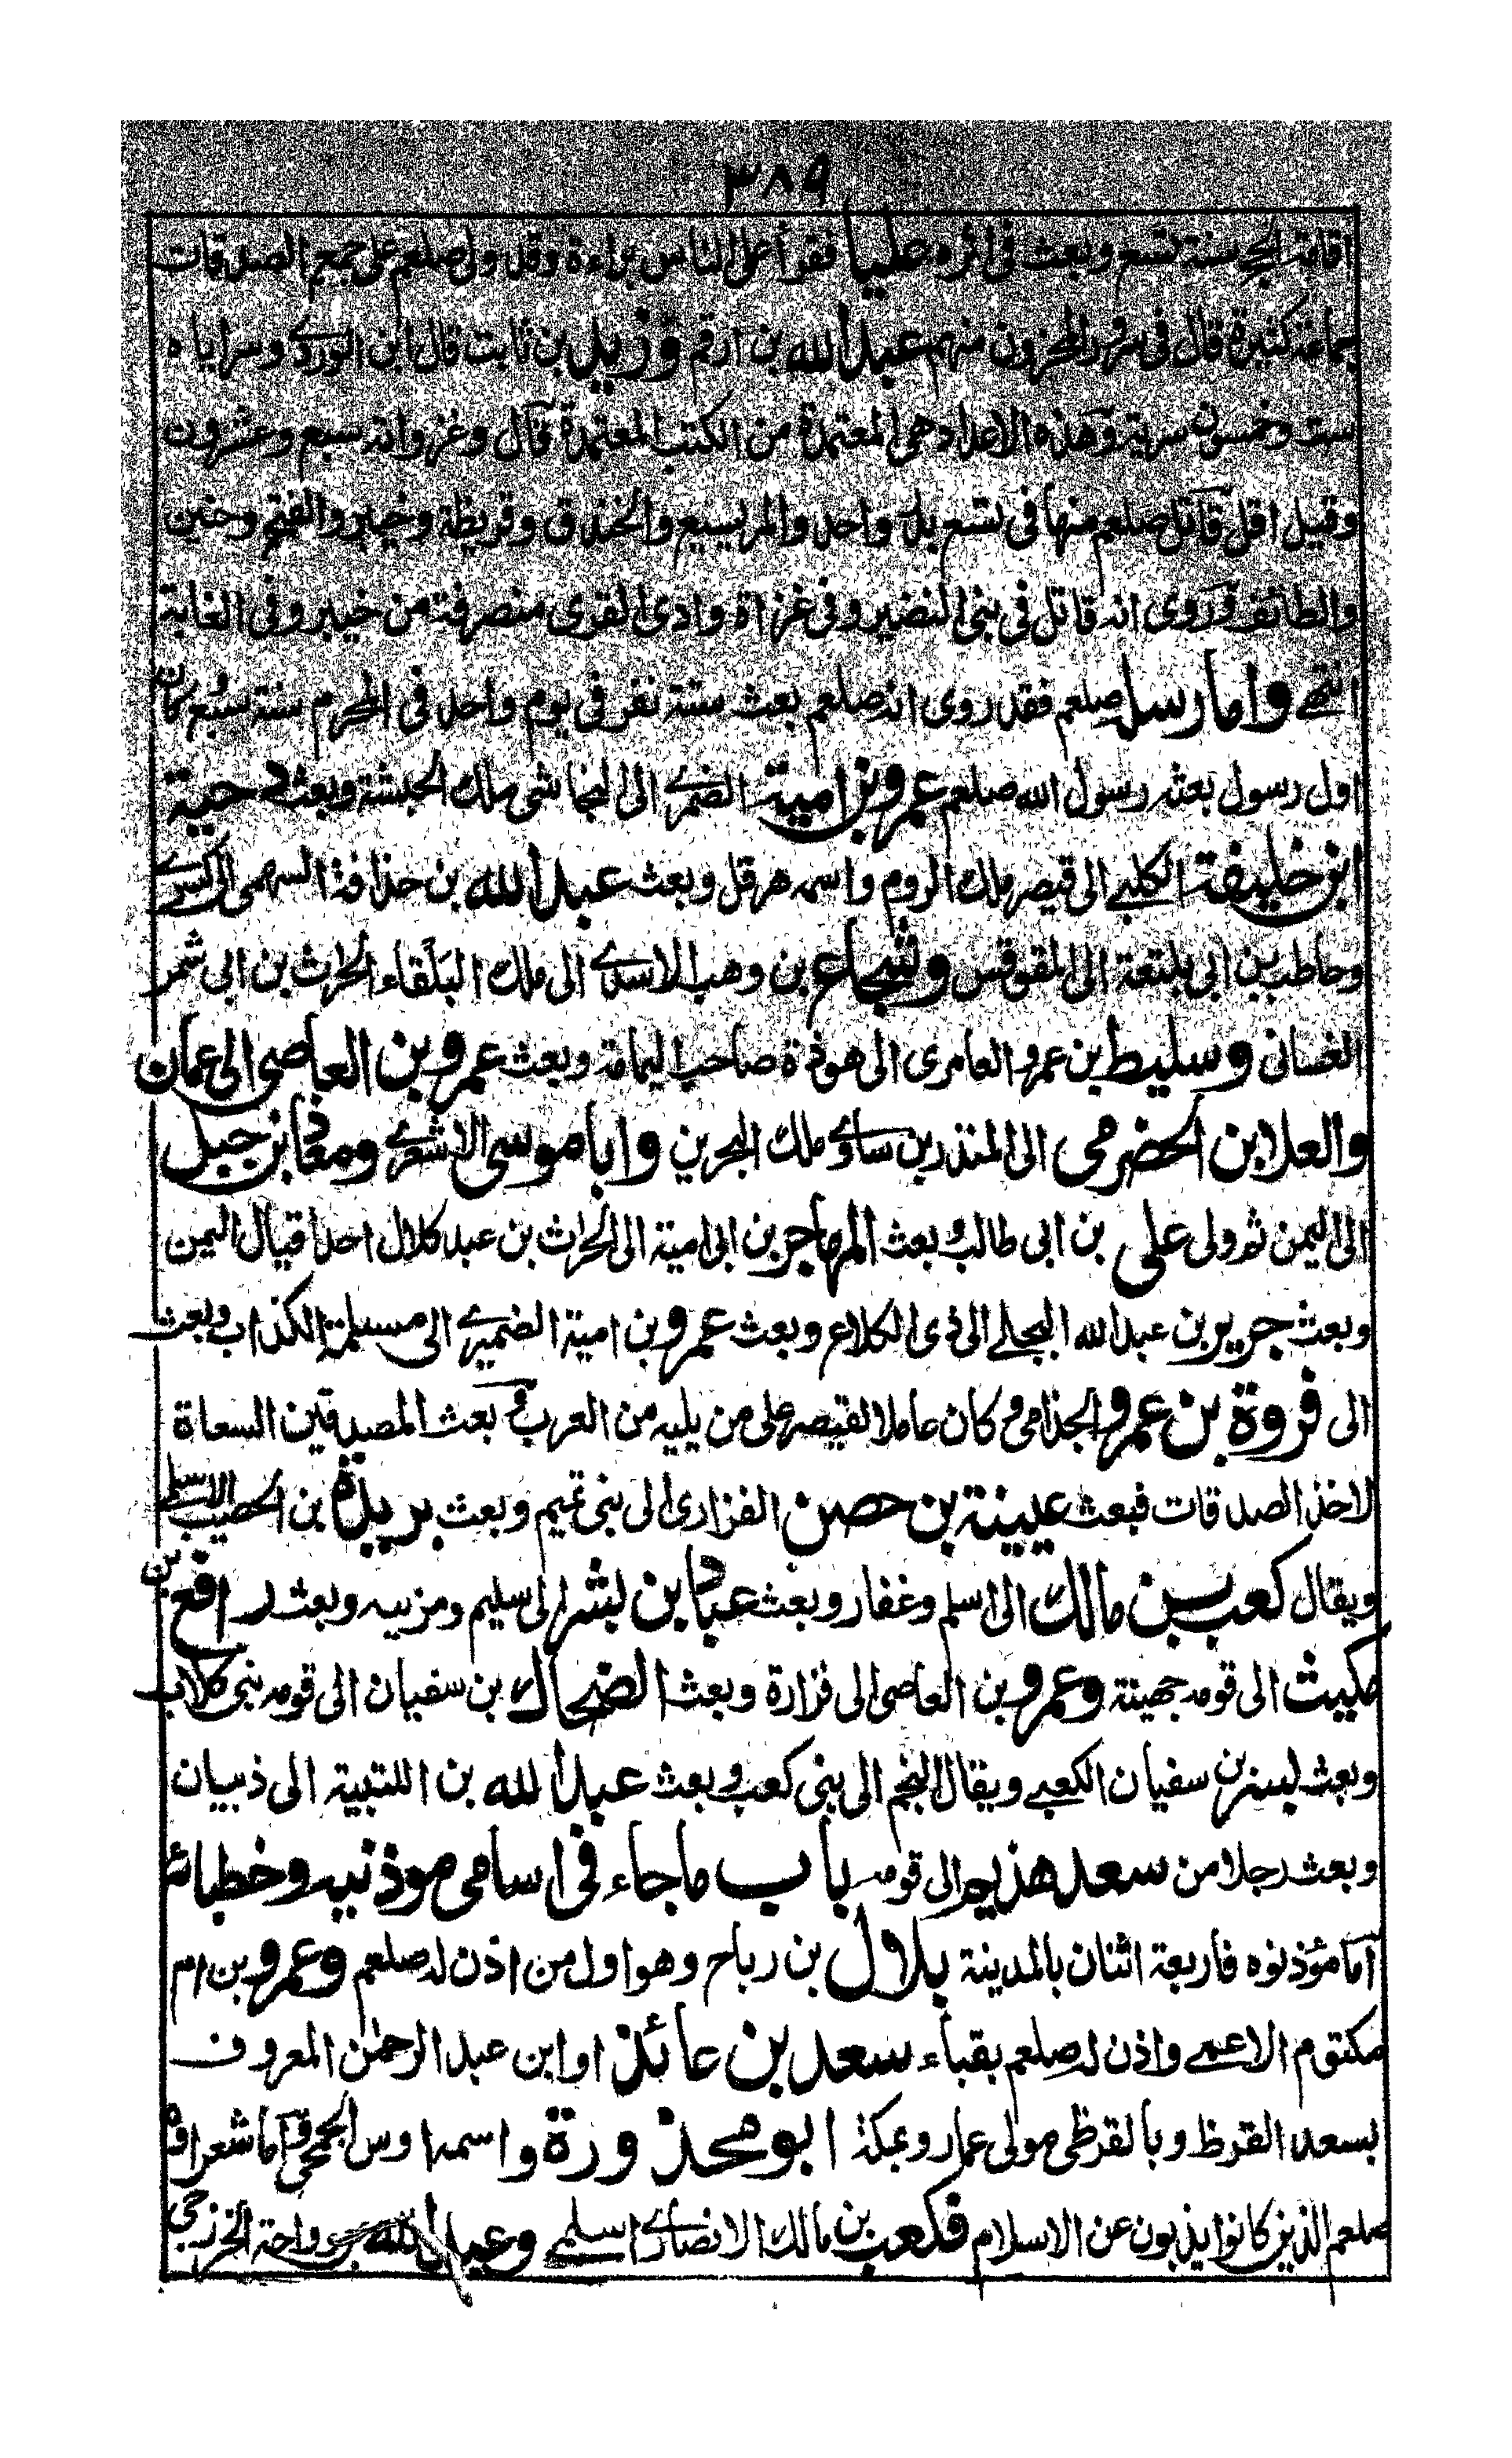 ٣٨٩
اقامة الحج سنة تسع وبعث في اثره عليا فقرأ على الناس براءة وقد ولى صلعم على جمع الصدقات
جماعة كثيرة قال في سرور المحزون منهم عبد الله بن ارقم وزيد بن ثابت قال ابن الوردي وسراياه
ست وخمسون سرية وهذه الاعداد هي المعتمدة من الكتب المعتمدة قال وغزواته سبع وعشرون
وقيل اقل قاتل صلعم منها في تسع بدر واحد والمريسيع والخندق وقريظة وخيبر والفتح وحنين
والطائف وروى انه قاتل في بني النضير وفي غزاة وادى القرى منصرفه من خيبر وفي الغابة
انتهى واما رسل صلعم فقد روى انه صلعم بعث ستة نفر في يوم واحد في المحرم سنة سبع كان
اول رسول بعثه رسول الله صلعم عمرو بن امية الضمرے الى النجاشي ملك الحبشة وبعث دحية
ابن خليفة الكلبے الى قيصر ملك الروم واسمه هرقل وبعث عبد الله بن حذافة السهمى الى كسرے
وحاطب بن ابى بلتعة الى المقوقس وشجاع بن وهب الاسدے الى ملك البلقاء الحارث بن ابي شمر
الغسانى وسليط بن عمرو العامرى الى هوذة صاحب اليمامة وبعث عمرو بن العاصى الى عمان
والعلا ابن الحضرمى الى المنذر بن ساوے ملك البحرين وابا موسى الاشعرے ومعاذ ابن جبل
الى اليمن ثم ولى على بن ابى طالب وبعث المهاجر بن ابى امية الى الحارث بن عبد كلال احد اقيال اليمن
وبعث جرير بن عبد الله البجلے الى ذى الكلاع وبعث عمرو بن امية الضميرے الى مسيلمة الكذاب وبعث
الى فروة بن عمرو الجذامى وكان عاملا لقيصر على من يليه من العرب وبعث المصدقين السعاة
لاخذ الصدقات فبعث عيينة بن حصن الفزارى الى بنى تميم وبعث بريدة بن الحصيب الاسلمے
ويقال كعب بن مالك الى اسلم وغفار وبعث عباد ابن بشر الى سليم ومزينه وبعث رافع بن
مكيث الى قومه جهينة وعمرو بن العاصى الى فزارة وبعث الضحاك بن سفيان الى قومه بنى كلاب
وبعث بسر بن سفيان الكعبے ويقال النجم الى بنى كعب وبعث عبد الله بن اللتبية الى ذبيان
وبعث رجلا من سعد هذيم الى قومه باب ما جاء في اسامى موذنيه وخطبائه
اما مؤذنوه فاربعة اثنان بالمدينة بلال بن رباح وهو اول من اذن له صلعم وعمرو بن ام
مكتوم الاعمے واذن له صلعم بقباء سعد بن عائذ او ابن عبد الرحمن المعروف
بسعد القرظ وبالقرظى مولى عمار وبمكة ابو محذورة واسمه اوس الجمحى واما شعراؤه
صلعم الذين كانوا يذبون عن الاسلام فكعب بن مالك الانصارے اسلمے وعبد الله بن رواحة الخزرجى